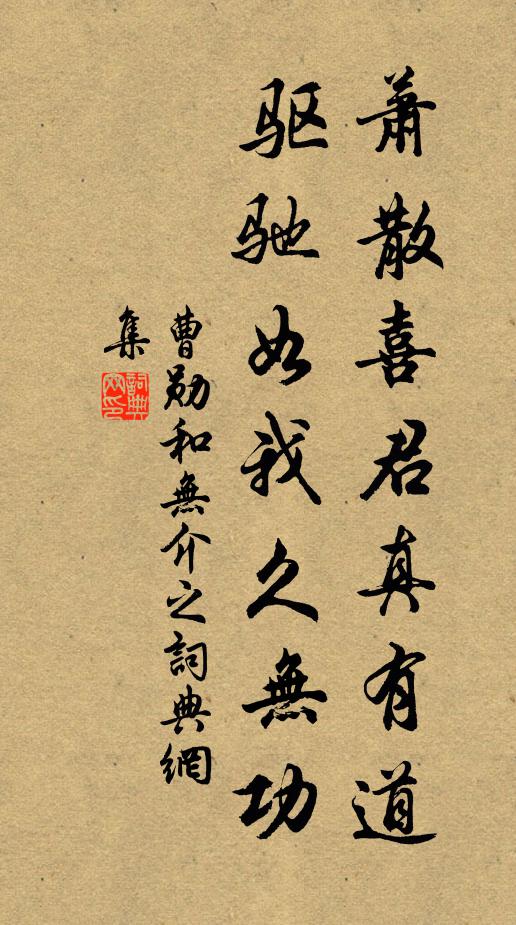 萧散喜君真有道
驱驰如我久無功
曹勋和無介之詞典網
集
詞典
网印